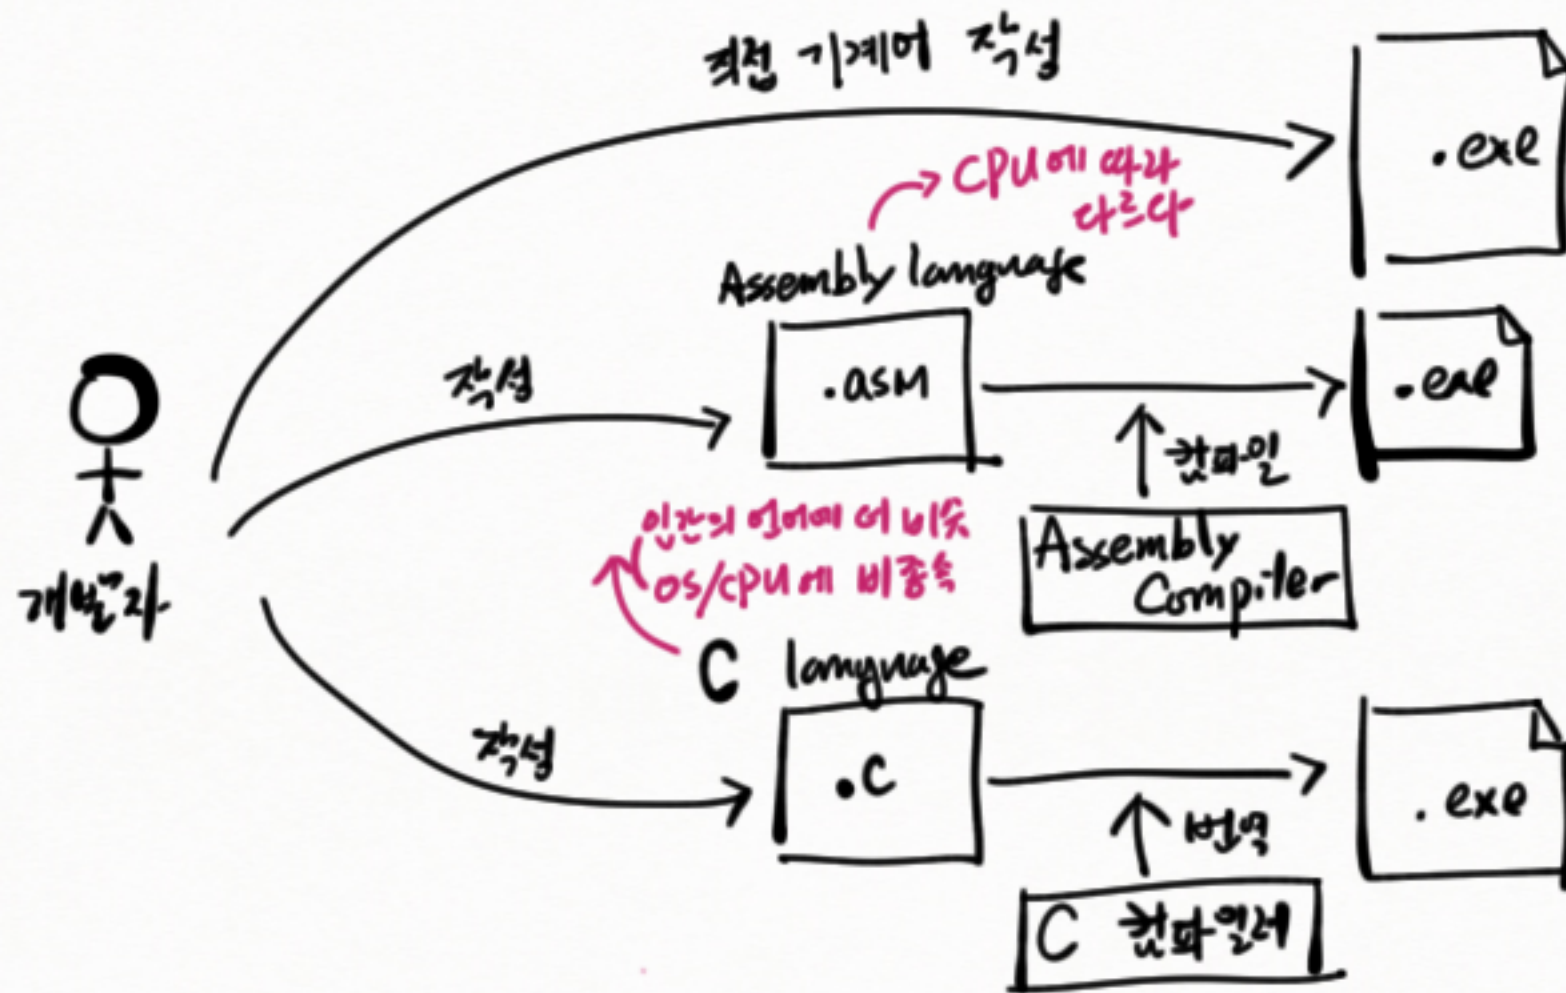 직접 기계어 작성
.exe
CPU에 따라
다르다
Assembly language
작성
.asm
.exe
컴파일
Assembly
Compiler
개발자
인간의 언어에 더 비슷
OS/CPU에 비종속
C language
작성
.C
.exe
번역
C 컴파일러